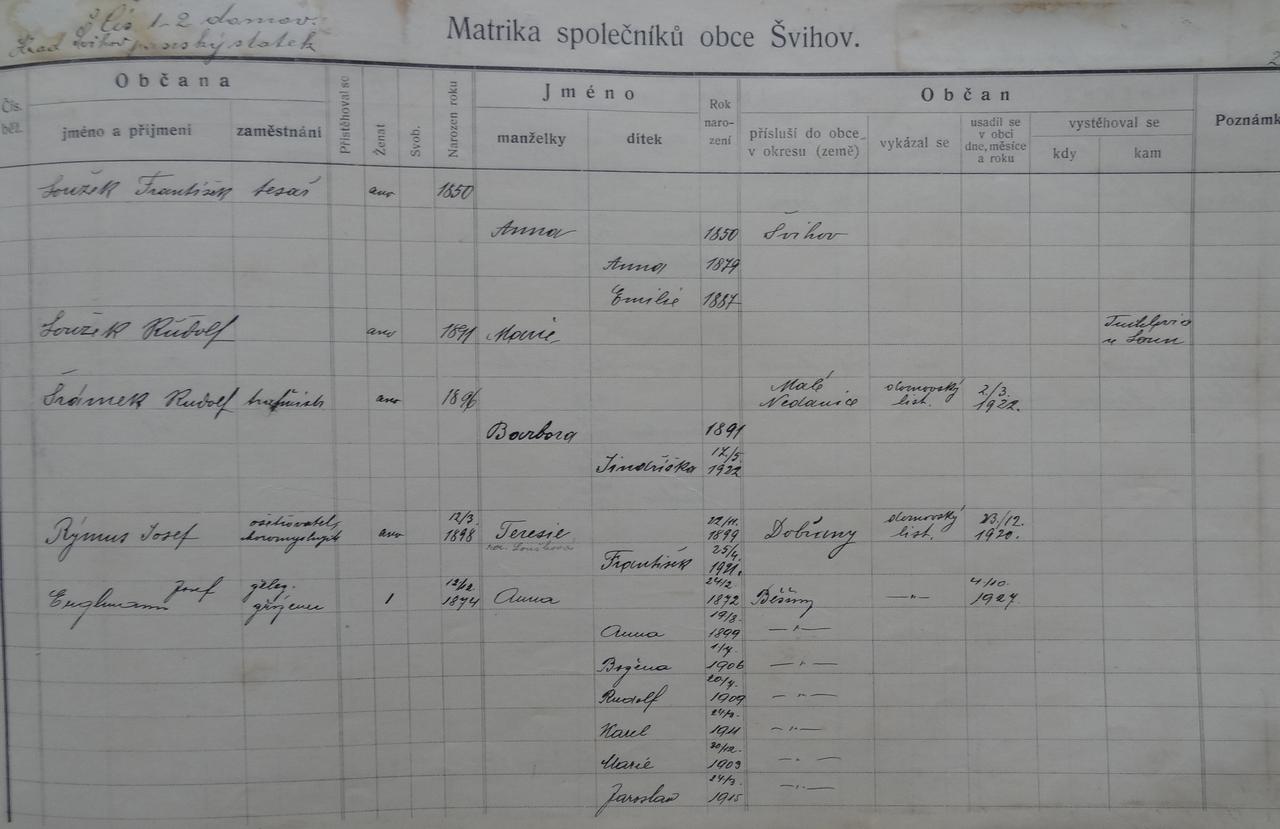 Čís 1-2 domov.
Hrad Švihov panský statek
Matrika společníků obce Švihov.
2
Čís. běž.
Občana
jméno a přijmení
zaměstnání
Přistěhoval se
Ženat
Svob.
Narozen roku
Jméno
manželky
dítek
Rok naro- zení
Občan
přísluší do obce v okresu (země)
vykázal se
usadil se v obci dne, měsíce a roku
vystěhoval se
kdy
kam
Poznámk
Loužek František tesař ano 1850
Anna 1850 Švihov
Anna 1879
Emilie 1887
Loužek Rudolf ano 1891 Marie
u Loun
Šrámek Rudolf ano 1896 Malé Nedanice domovský list. 2/3. 1922.
Barbora 1891
Jindřiška 17/5 1922
Rýmus Josef ošetřovatel ano 12/3. 1898 Terezie 22/11. 1899 Dobřany domovský list. 23/12. 1920.
roz. Loužková
František 25/4. 1921.
Englmann Josef želez. zřízenec 1 12/12 1874 Anna 24/2 1872 Běšiny —"— 4/10. 1927
Anna 19/8. 1899 —"—
Božena 1906 —"—
Rudolf 1909 —"—
Karel 1911 —"—
Marie 20/12. 1903 —"—
Jaroslav 24/3. 1915 —"—